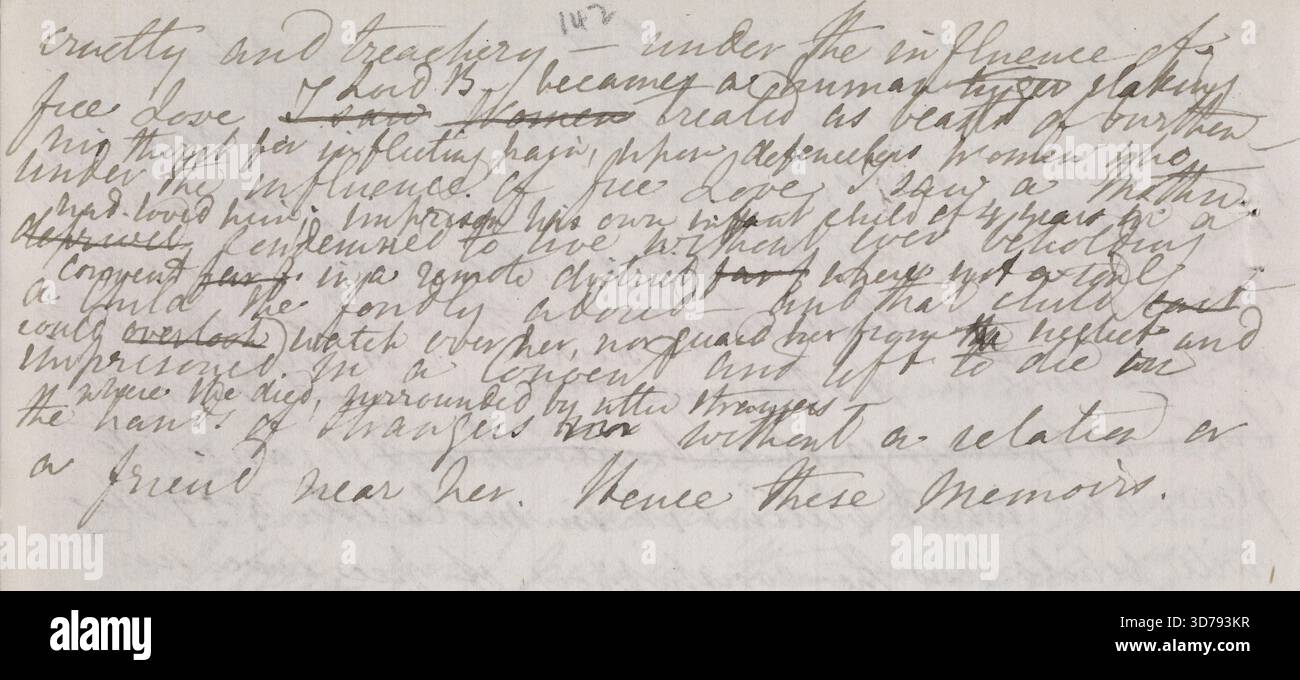 142
cruelty and treachery — under the influence of
Lord B becames a human tyger slaking
free Love I saw Women treated as beasts of burthen
his thirst for inflicting pain, upon defenceless women who
under the influence of free Love I saw a mother
had loved him; imprison his own infant child of 4 years in a
deprived, condemned to live without ever beholding
convent in a remote district where not a soul
a child she fondly adored — and that child cast
could overlook watch over her, nor guard her from the neglect and
imprisoned in a Convent and left to die in
where she died, surrounded by utter strangers
the hands of strangers without a relation or
a friend near her. Hence these Memoirs.
alamy
Image ID: 2D793KR
www.alamy.com